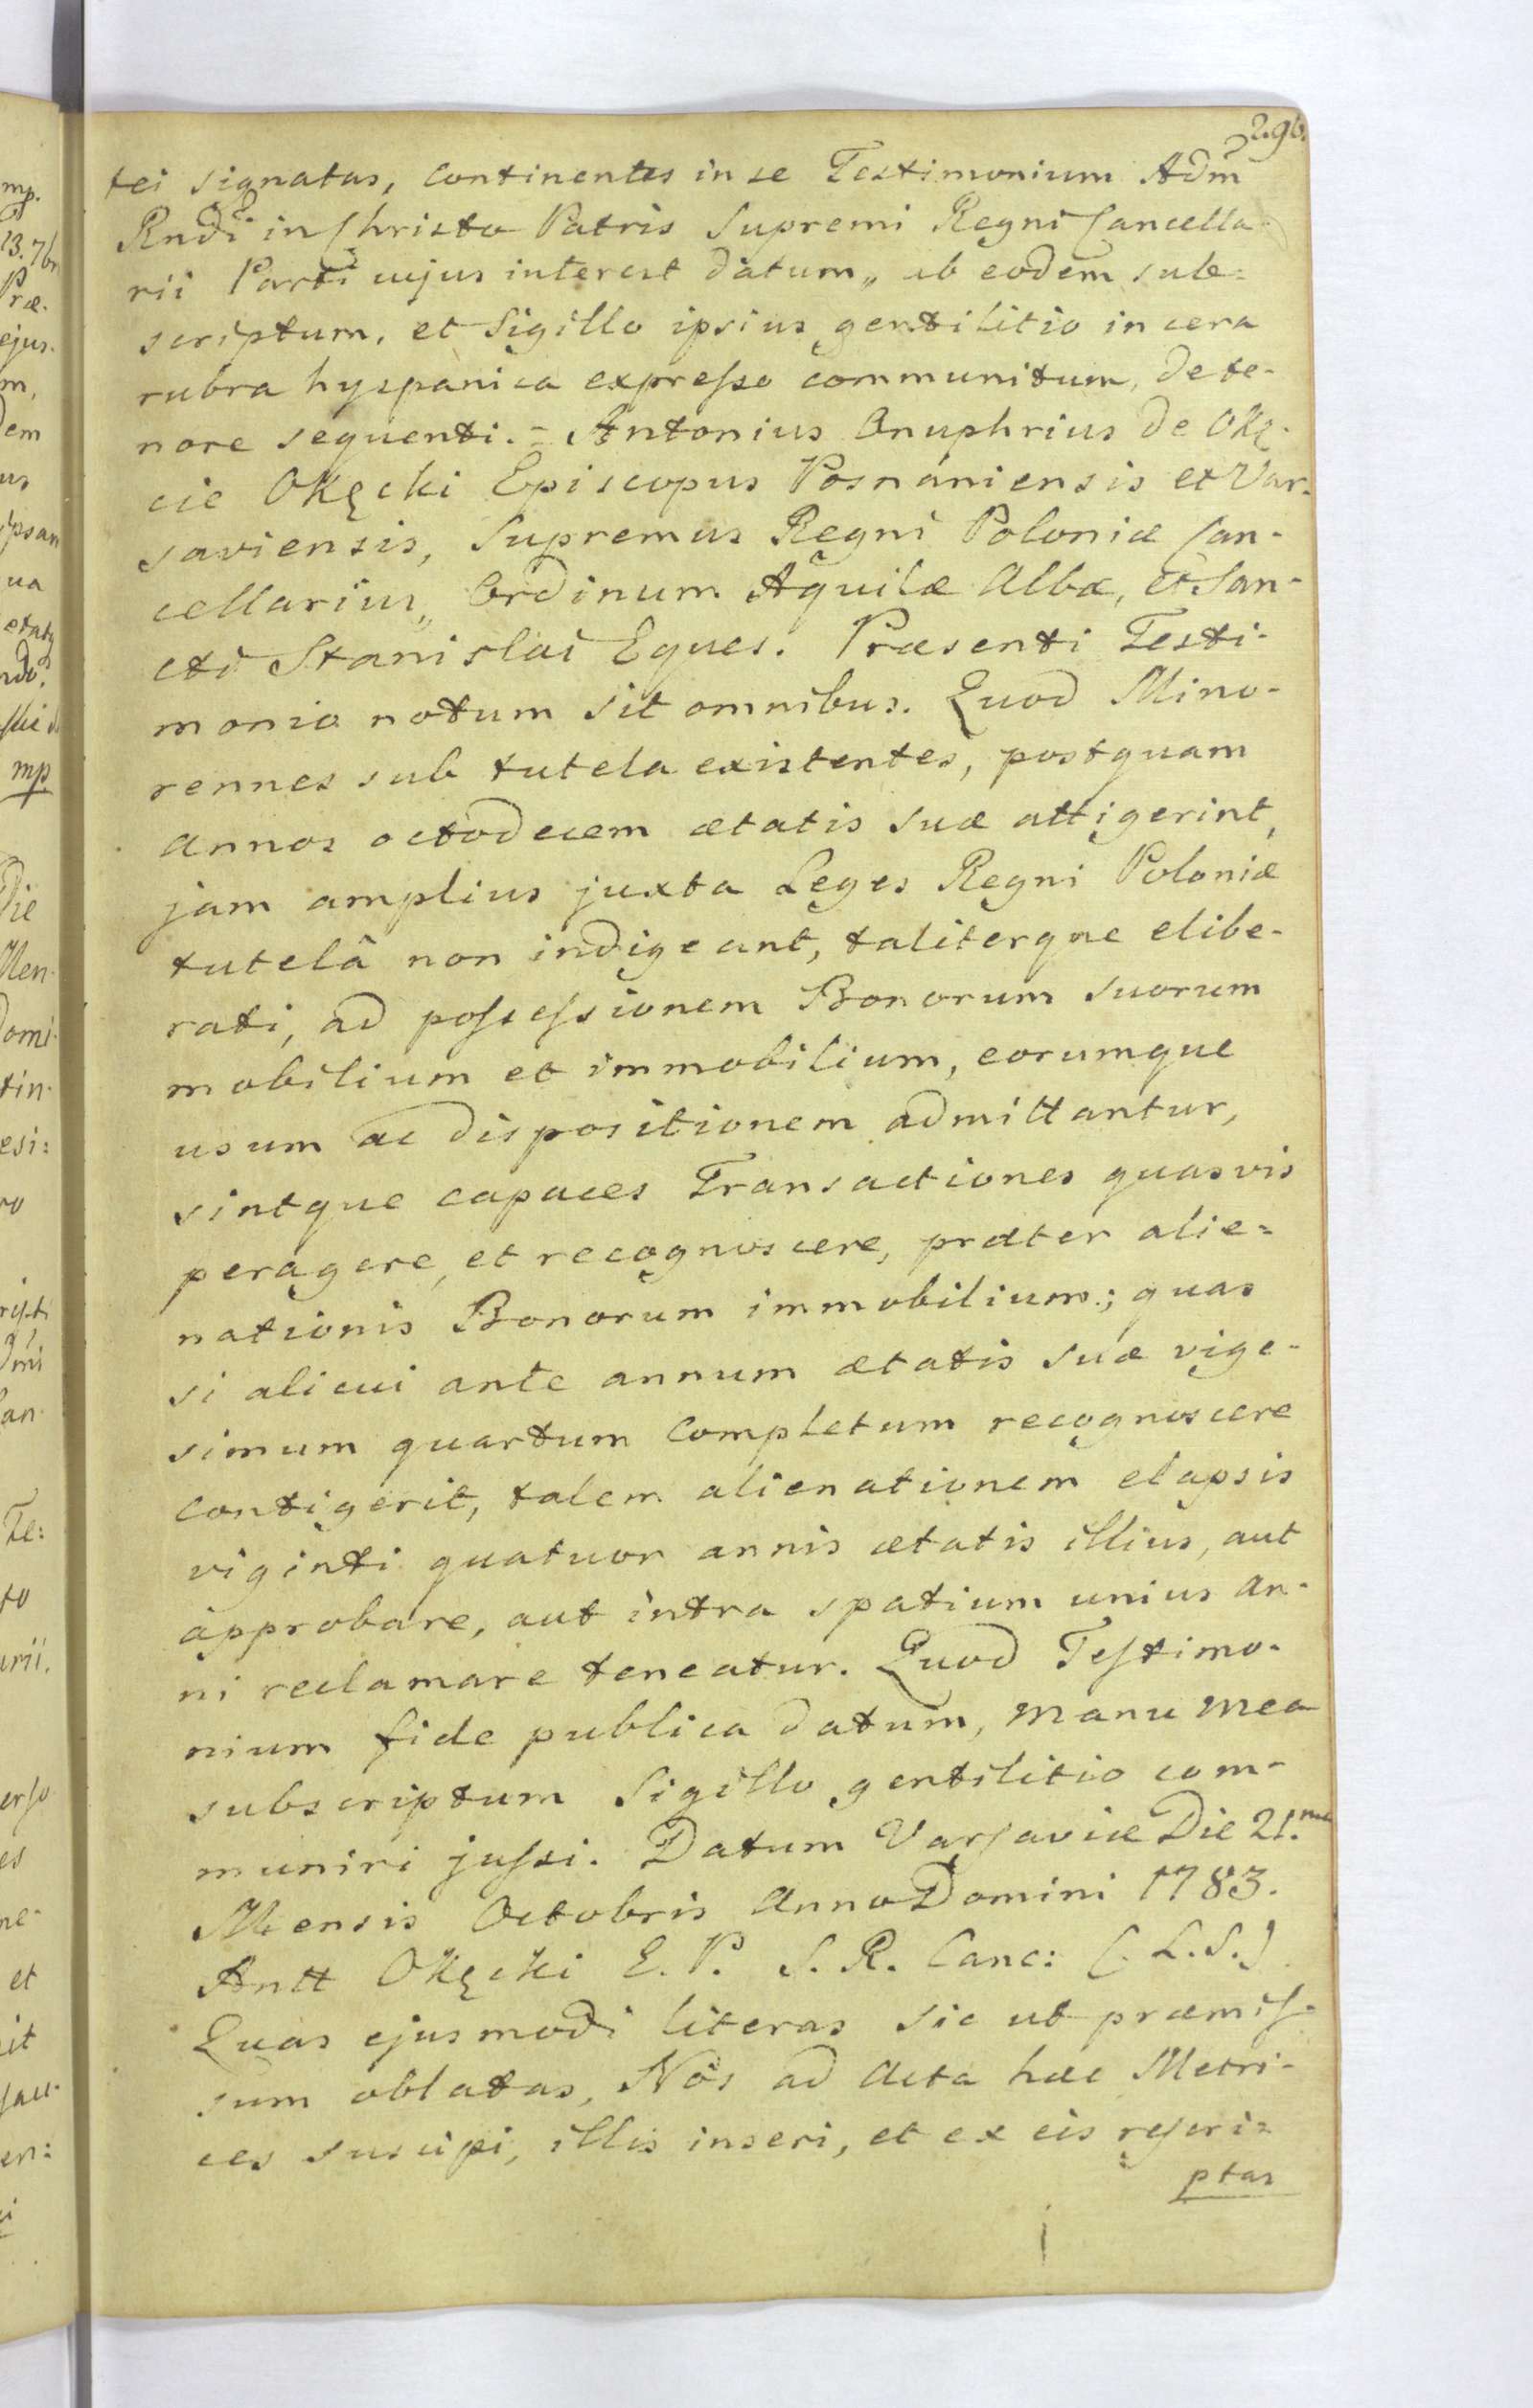 296.
tei signatas, continentes in se Testimonium Adm
Rndi in Christo Patris Supremi Regni Cancella-
rii Parti cujus interest datum„ ab eodem sub=
scriptum, et Sigillo ipsius gentilitio in cera
rubra hyspanica expresso communitum, de te-
nore sequenti. = Antonius Onuphrius de Okę-
cie Okęcki Episcopus Posnaniensis et Var-
saviensis, Supremus Regni Poloniæ Can-
cellarius„ Ordinum Aquilæ Albæ, et San-
cti Stanislai Eques. Præsenti Testi-
monio notum sit omnibus. Quod Mino-
rennes sub tutela existentes, postquam
annos octodecem ætatis suæ attigerint,
jam amplius juxta Leges Regni Poloniæ
tutelâ non indigeant, taliterque elibe-
rati, ad possessionem Bonorum suorum
mobilium et immobilium, eorumque
usum ac dispositionem admittantur,
sintque capaces Transactiones quasvis
peragere, et recognoscere, præter alie=
nationis Bonorum immobilium; quas
si alicui ante annum ætatis suæ vige-
simum quartum completum recognoscere
contigerit, talem alienationem elapsis
viginti quatuor annis ætatis illius, aut
approbare, aut intra spatium unius an-
ni reclamare teneatur. Quod Testimo-
nium fide publica datum, manu mea
subscriptum Sigillo gentilitio com-
muniri jussi. Datum Varsaviæ Die 21.ma
Mensis Octobris Anno Domini 1783.
Antt Okęcki E. P. S. R. Canc: (L.S.)
Quas ejusmodi literas sic ut præmis-
sum oblatas, Nos ad Acta hæc Metri-
ces suscipi, illis inseri, et ex eis rescri=
ptas